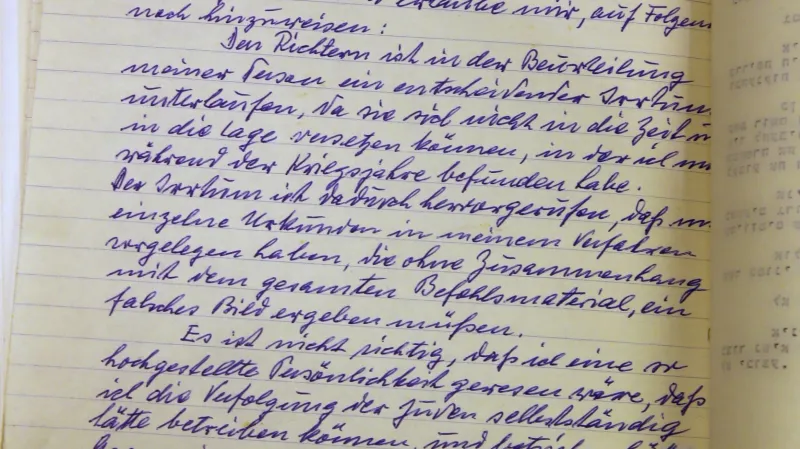 mir, auf Folgen
noch hinzuweisen:
Den Richtern ist in der Beurteilung
meiner Person ein entscheidender Irrtum
unterlaufen, da sie sich nicht in die Zeit u
in die Lage versetzen können, in der ich m
während der Kriegsjahre befunden habe.
Der Irrtum ist dadurch hervorgerufen, daß m
einzelne Urkunden in meinem Verfahren
vorgelegen haben, die ohne Zusammenhang
mit dem gesamten Befehlsmaterial, ein
falsches Bild ergeben müßen.
Es ist nicht richtig, daß ich eine so
hochgestellte Persönlichkeit gewesen wäre, daß
ich die Verfolgung der Juden selbstständig
hätte betreiben können, und